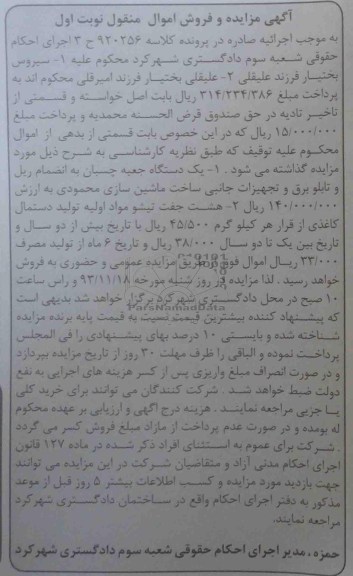 آگهی مزایده و فروش اموال منقول نوبت اول
به موجب اجرائیه صادره در پرونده کلاسه ۹۲۰۲۵۶ ح ۳ اجرای احکام
حقوقی شعبه سوم دادگستری شهرکرد محکوم علیه ۱- سیروس
بختیار فرزند علیقلی ۲- علیقلی بختیار فرزند امیرقلی محکوم اند به
پرداخت مبلغ ۳۱۴/۲۳۴/۳۸۶ ریال بابت اصل خواسته و قسمتی از
تاخیر تادیه در حق صندوق قرض الحسنه محمدیه و پرداخت مبلغ
۱۵/۰۰۰/۰۰۰ ریال که در این خصوص بابت قسمتی از بدهی از اموال
محکوم علیه توقیف که طبق نظریه کارشناسی به شرح ذیل مورد
مزایده گذاشته می شود . ۱- یک دستگاه جعبه چسبان به انضمام ریل
و تابلو برق و تجهیزات جانبی ساخت ماشین سازی محمودی به ارزش
۱۴۰/۰۰۰/۰۰۰ ریال ۲- هشت جفت تیشو مواد اولیه تولید دستمال
کاغذی از قرار هر کیلو گرم ۴۵/۵۰۰ ریال با تاریخ بیش از دو سال و
تاریخ بین یک تا دو سال ۳۸/۰۰۰ ریال و تاریخ ۶ ماه از تولید مصرف
۳۳/۰۰۰ ریال اموال فوق از طریق مزایده عمومی و حضوری به فروش
خواهد رسید . لذا مزایده در روز شنبه مورخه ۹۳/۱۱/۱۸ و راس ساعت
۱۰ صبح در محل دادگستری شهرکرد برگزار خواهد شد بدیهی است
که پیشنهاد کننده بیشترین قیمت نسبت به قیمت پایه برنده مزایده
شناخته شده و بایستی ۱۰ درصد بهای پیشنهادی را فی المجلس
پرداخت نموده و الباقی را ظرف مهلت ۳۰ روز از تاریخ مزایده بپردازد
و در صورت انصراف مبلغ واریزی پس از کسر هزینه های اجرایی به نفع
دولت ضبط خواهد شد . شرکت کنندگان می توانند برای خرید کلی
یا جزیی مراجعه نمایند . هزینه درج اگهی و ارزیابی بر عهده محکوم
له بومده و در صورت عدم پرداخت از مازاد مبلغ فروش کسر می گردد
. شرکت برای عموم به استثنای افراد ذکر شده در ماده ۱۲۷ قانون
اجرای احکام مدنی آزاد و متقاضیان شرکت در این مزایده می توانند
جهت بازدید مورد مزایده و کسب اطلاعات بیشتر ۵ روز قبل از موعد
مذکور به دفتر اجرای احکام واقع در ساختمان دادگستری شهرکرد
مراجعه نمایند.
حمزه، مدیر اجرای احکام حقوقی شعبه سوم دادگستری شهرکرد